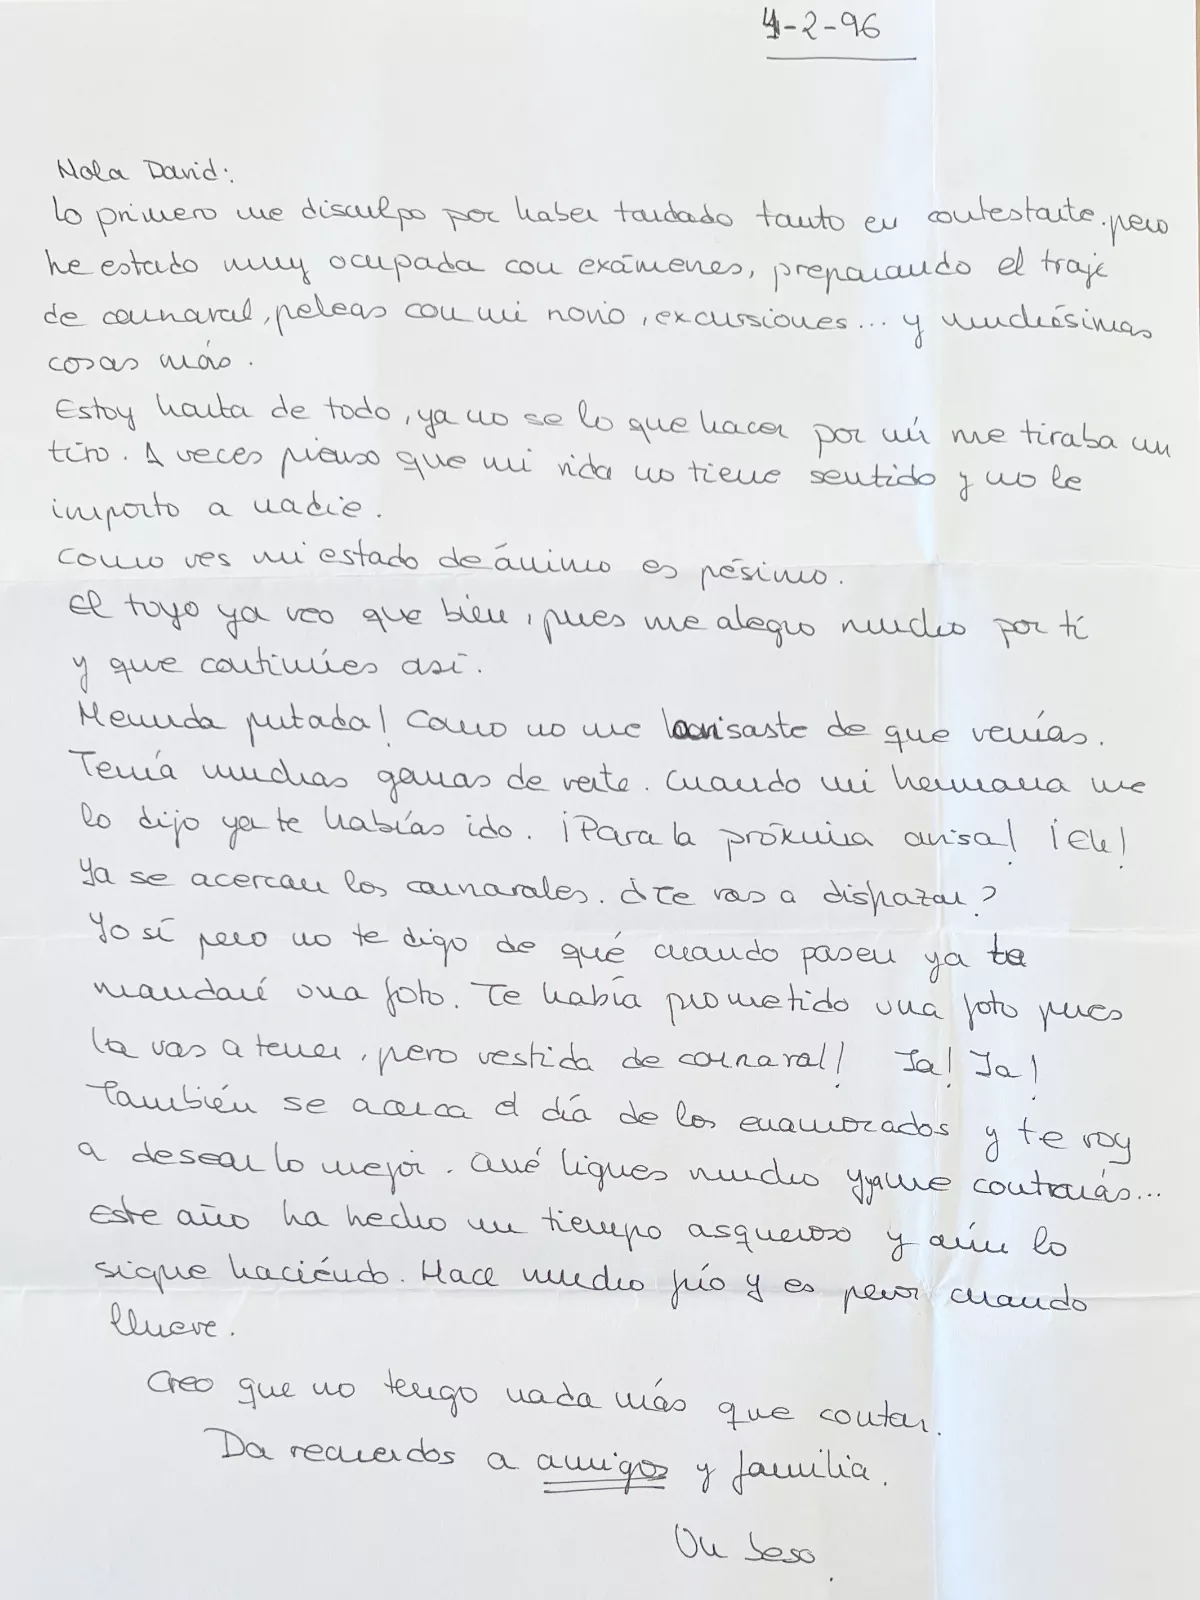 4-2-96
Hola David:
Lo primero me disculpo por haber tardado tanto en contestarte. pero
he estado muy ocupada con exámenes, preparando el traje
de carnaval, peleas con mi novio, excursiones... y muchísimas
cosas más.
Estoy harta de todo, ya no se lo que hacer por mí me tiraba un
tiro. A veces pienso que mi vida no tiene sentido y no le
importo a nadie.
Como ves mi estado de ánimo es pésimo.
El tuyo ya veo que bien, pues me alegro mucho por tí
y que continúes así.
Menuda putada! Como no me avisaste de que venías.
Tenía muchas ganas de verte. Cuando mi hermana me
lo dijo ya te habías ido. ¡Para la próxima avisa! ¡Eh!
Ya se acercan los carnavales. ¿Te vas a disfrazar?
Yo sí pero no te digo de qué cuando pasen ya te
mandaré una foto. Te había prometido una foto pues
la vas a tener, pero vestida de carnaval! Ja! Ja!
También se acerca el día de los enamorados y te voy
a desear lo mejor. Qué ligues mucho y ya me contarás...
Este año ha hecho un tiempo asqueroso y aún lo
sigue haciéndo. Hace mucho frío y es peor cuando
llueve.
Creo que no tengo nada más que contar.
Da recuerdos a amigos y familia.
Un beso.